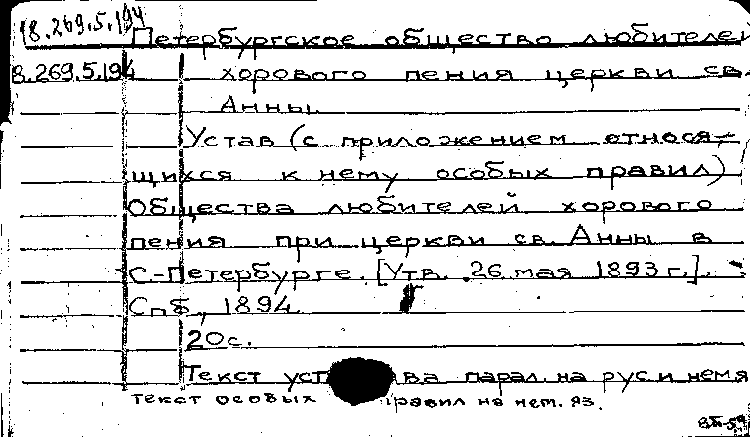 18.269.5.194
Петербургское общество любителей
8.269.5.194 хорового пения церкви св.
Анны.
Устав (с приложением относя-
щихся к нему особых правил)
Общества любителей хорового
пения при церкви св. Анны в
С.-Петербурге. [Утв. 26 мая 1893 г.].
Спб., 1894.
20с.
Текст уст ва парал. на рус и нем я
текст особых правил на нем. яз.